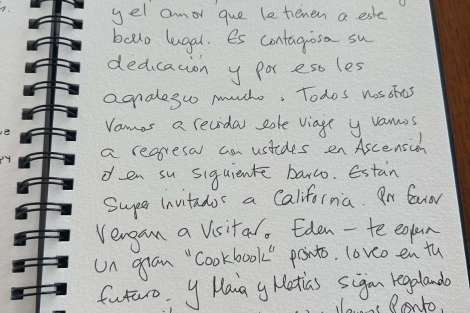 y el amor que le tienen a este
bello lugar. Es contagiosa su
dedicación y por eso les
agradezco mucho. Todos nosotros
vamos a recordar este viaje y vamos
a regresar con ustedes en Ascensión
o en su siguiente barco. Están
Super invitados a California. Por favor
vengan a visitar. Eden - te espera
un gran "Cookbook" pronto. lo veo en tu
futuro. y Maia y Matias sigan regalando
Pronto,